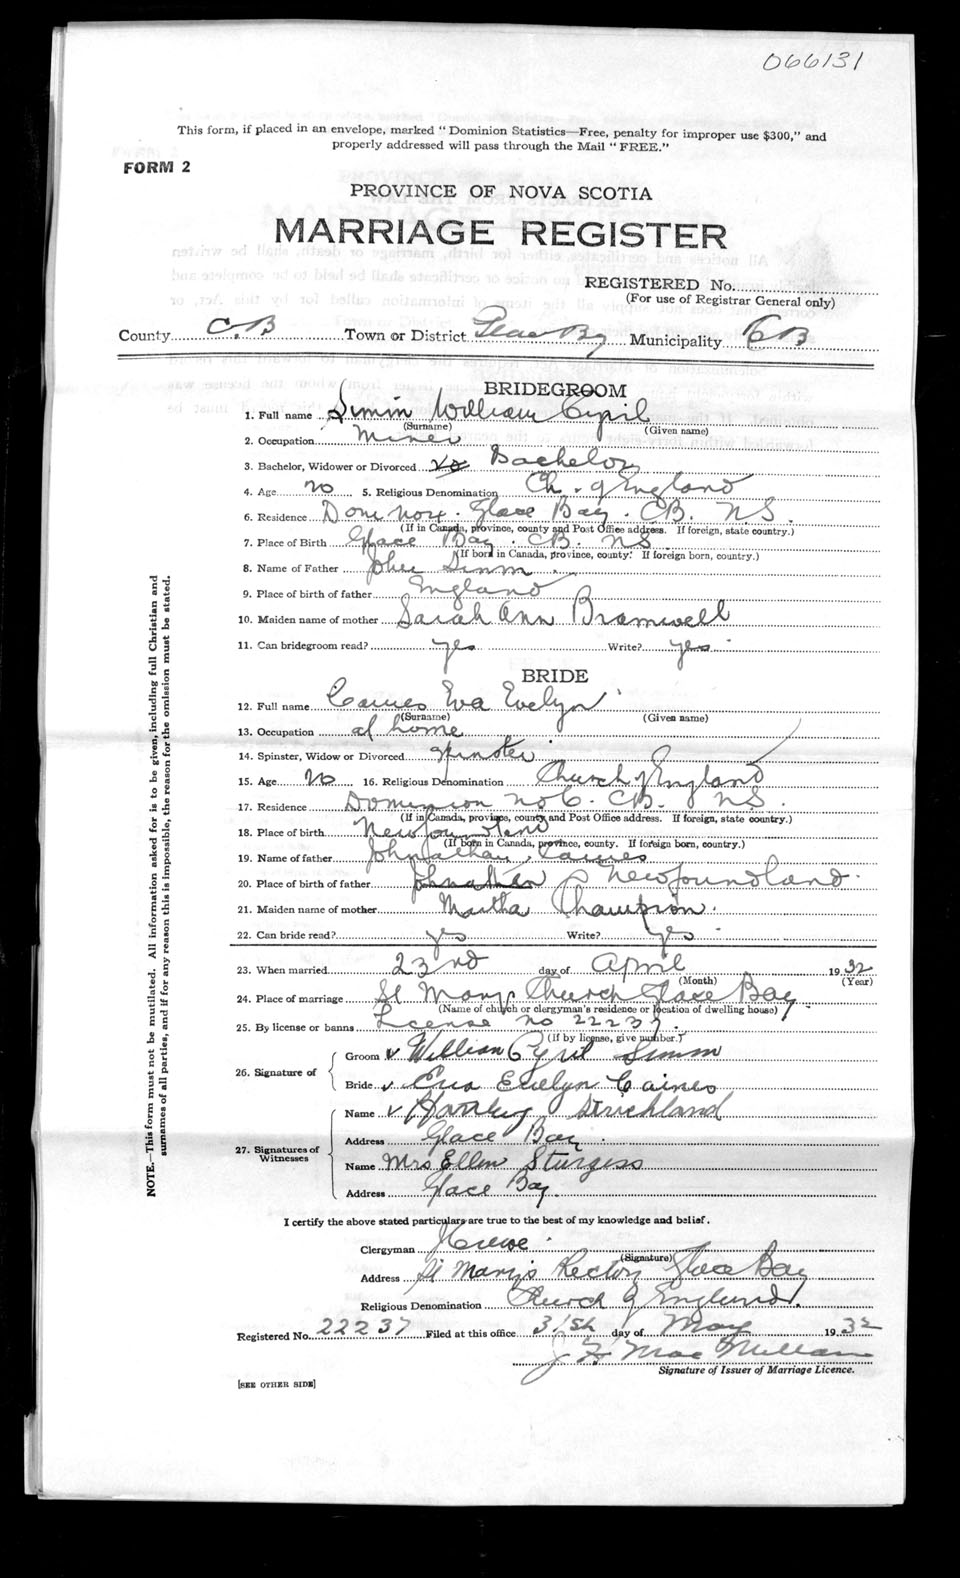 066131
This form, if placed in an envelope, marked "Dominion Statistics—Free, penalty for improper use $300," and
properly addressed will pass through the Mail "FREE."
FORM 2
PROVINCE OF NOVA SCOTIA
MARRIAGE REGISTER
REGISTERED No.
(For use of Registrar General only)
County C.B Town or District Glace Bay Municipality CB
BRIDEGROOM
1. Full name Simm William Cyril
(Surname) (Given name)
2. Occupation Miner
3. Bachelor, Widower or Divorced Bachelor
4. Age 20 5. Religious Denomination Ch. of England
6. Residence Dom No 6. Glace Bay. CB. N.S.
(If in Canada, province, county and Post Office address. If foreign, state country.)
7. Place of Birth Glace Bay. CB. NS
(If born in Canada, province, county. If foreign born, country.)
8. Name of Father John Simm
9. Place of birth of father England
10. Maiden name of mother Sarah Ann Bramwell
11. Can bridegroom read? yes Write? yes
BRIDE
12. Full name Caines Eva Evelyn
(Surname) (Given name)
13. Occupation at home
14. Spinster, Widow or Divorced Spinster
15. Age 20 16. Religious Denomination Church of England
17. Residence Dominion No 6. CB. NS.
(If in Canada, province, county and Post Office address. If foreign, state country.)
18. Place of birth Newfoundland
(If born in Canada, province, county. If foreign born, country.)
19. Name of father Johnathan Caines
20. Place of birth of father Johnathan Newfoundland
21. Maiden name of mother Martha Champion.
22. Can bride read? yes Write? yes
23. When married 23rd day of April 1932
(Month) (Year)
24. Place of marriage St Marys Church Glace Bay
(Name of church or clergyman's residence or location of dwelling house)
25. By license or banns License no 22237.
(If by license, give number.)
26. Signature of Groom v William Cyril Simm
Bride v Eva Evelyn Caines
27. Signatures of Witnesses Name v Strickland
Address Glace Bay
Name Mrs Ellen Sturgess
Address Glace Bay.
I certify the above stated particulars are true to the best of my knowledge and belief.
Clergyman
(Signature)
Address St Mary's Rectory Glace Bay
Religious Denomination Church of England.
Registered No. 22237 Filed at this office 31st day of May 1932
J H MacMillan
Signature of Issuer of Marriage Licence.
[SEE OTHER SIDE]
NOTE.—This form must not be mutilated. All information asked for is to be given, including full Christian and
surnames of all parties, and if for any reason this is impossible, the reason for the omission must be stated.